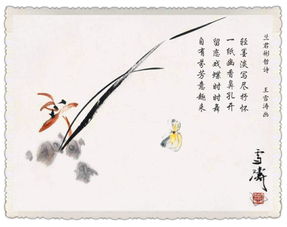 兰君彬哲诗 王雪涛画
轻墨淡写尽抒怀
一纸幽香鼻孔开
留恋戏蝶时时舞
自有芬芳意趣来
雪濤